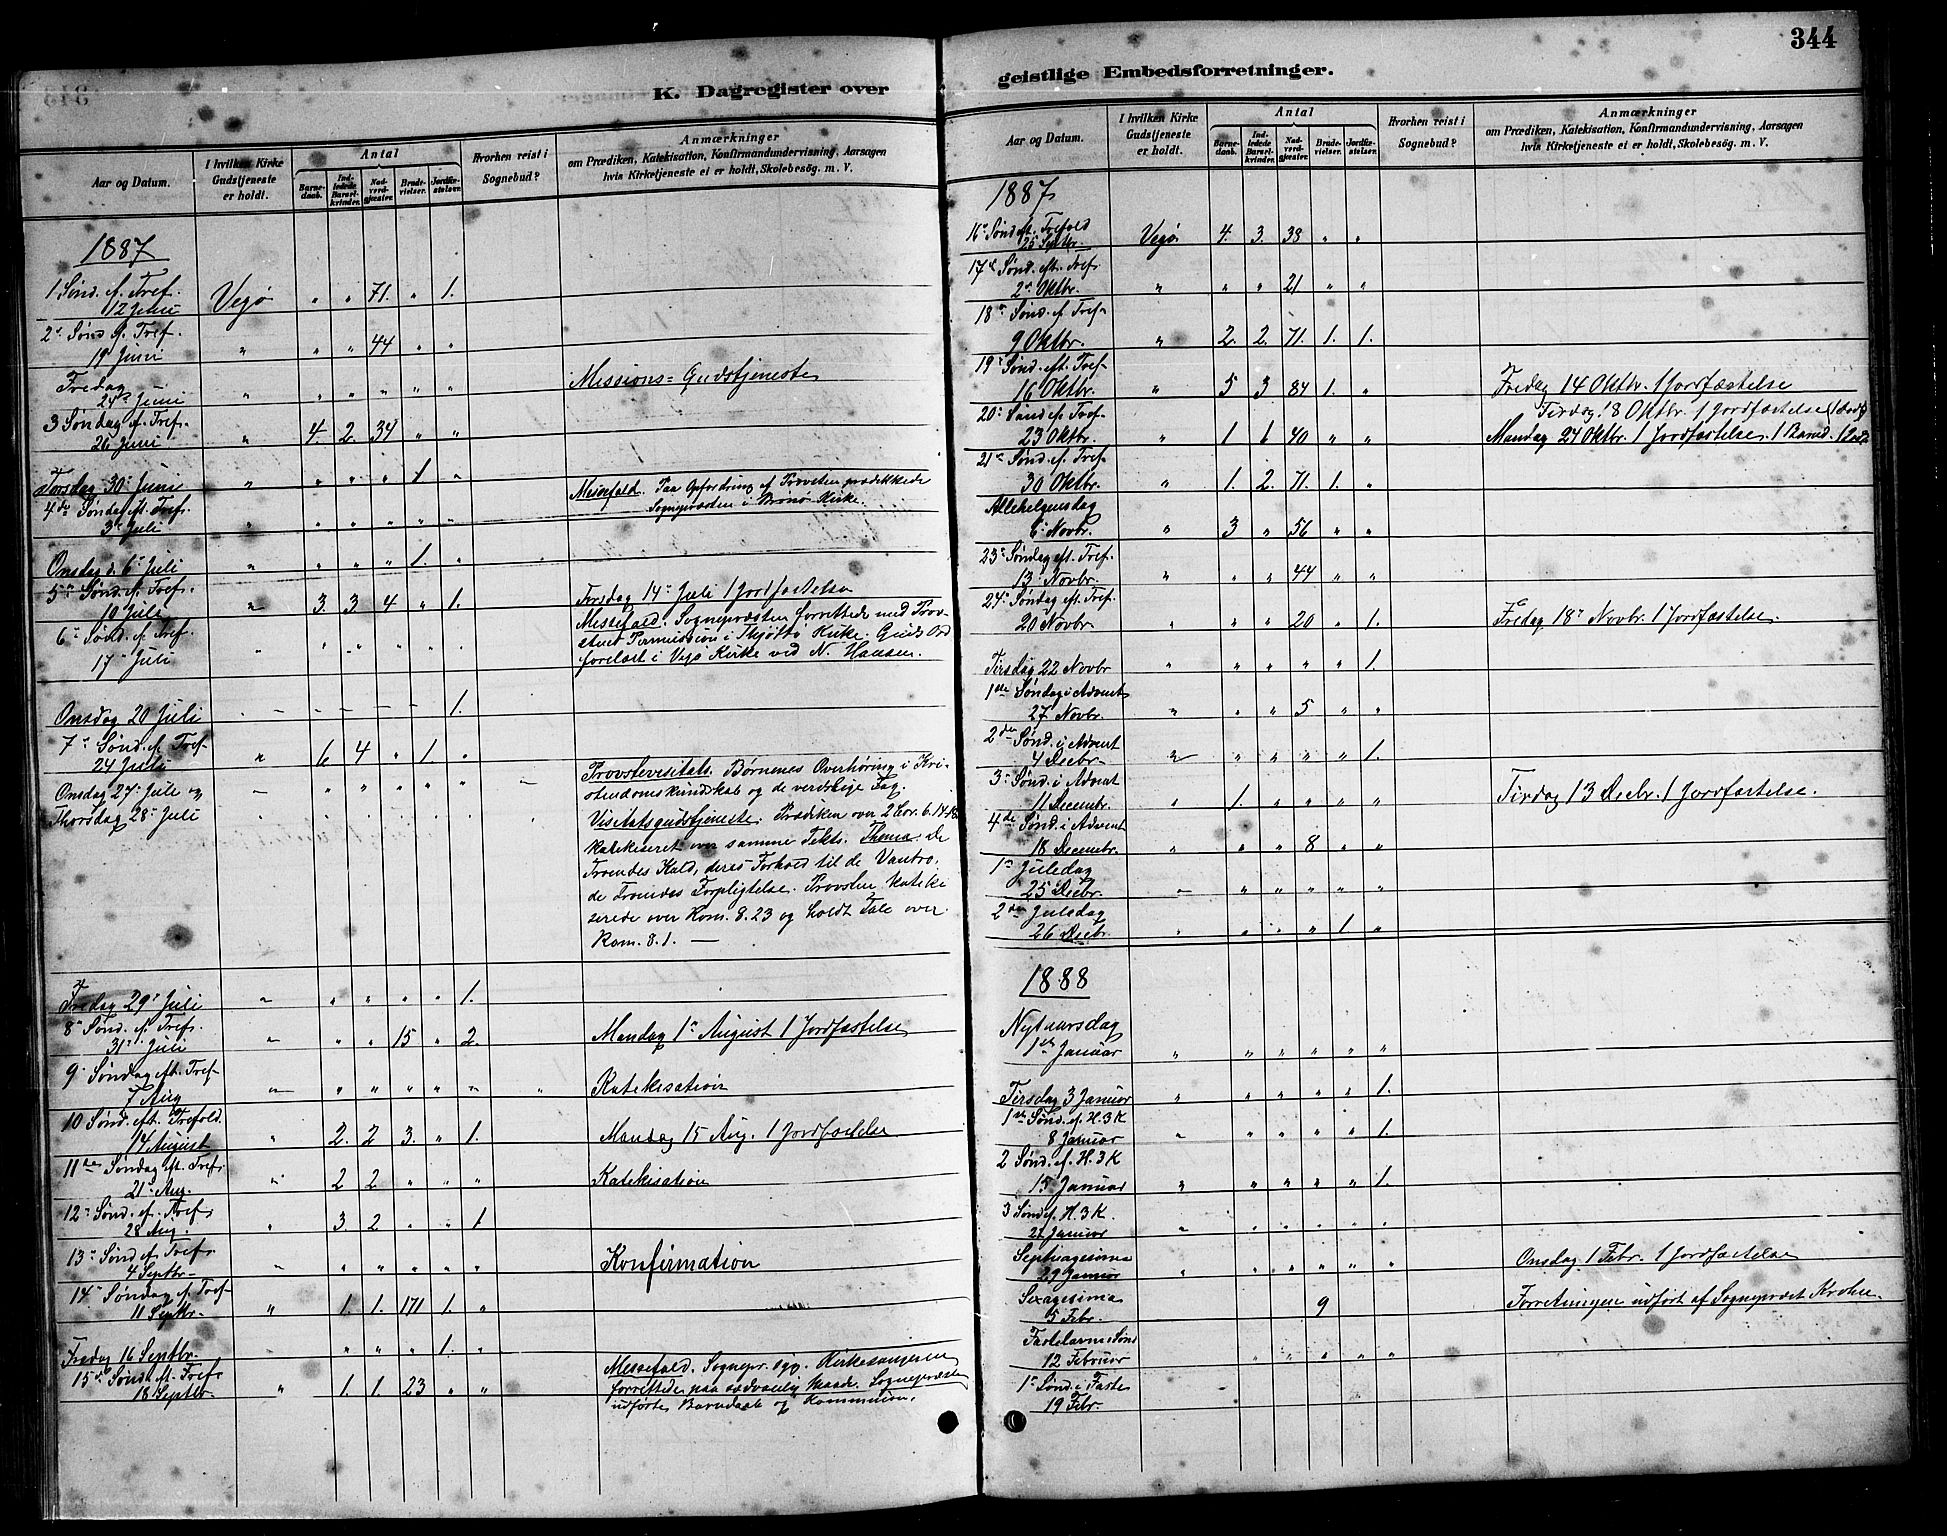 344
K. Dagregister over
Aar og Datum.
I hvilken Kirke Gudstjeneste er holdt.
Antal
Barne-daab.
Ind-ledede Barsel-kvinder.
Nad-verd-gjæster.
Brude-vielser.
Jordfæ-stelser.
Hvorhen reist i Sognebud?
Anmærkninger
om Prædiken, Katekisation, Konfirmandundervisning, Aarsagen
hvis Kirketjeneste ei er holdt, Skolebesøg. m. V.
1887
1 Sønd. f. Tref.
12 Juni Vegø " " 71. " 1.
2n Sønd f. Tref.
19 Juni " " " 44 " "
Fredag
24n Juni " " " " " " Missions=Gudstjeneste
3 Søndag f. Tref.
26 Juni " 4. 2. 34 " "
Torsdag 30n Juni " " " " 1 "
4de Søndag eft. Tref. Messefald. Paa Opfordring af Provsten prædikkede
3n Juli " " " " " " Sognepræsten i Brønø Kirke.
Onsdag d. 6n Juli " " " " 1. "
5n Sønd. f. Tref.
10 Juli " 3. 3. 4 " 1. Torsdag 14n Juli 1 Jordfæstelse
6n Sønd. f. Tref. Messefald. Sognepræsten forrettede med Prov-
17n Juli " " " " " " stens Permission i Thjøtto Kirke. Guds Ord
forelæst i Vegø Kirke ved N. Hansen.
Onsdag 20 Juli - - - - - 1.
7n Sønd. f. Tref.
24 Juli " 6 4 " 1 "
Onsdag 27n Juli og " " " " " Provstevisitats. Børnenes Overhøring i Kri-
stendomskundskab og de verdslige Fag.
Thorsdag 28n Juli Visitatsgudstjeneste. Prædiken over 2 Cor. 6.14-18
katekiseret over samme Tekts. Thema: De
Troendes Kald, deres Forhold til de Vantro,
de Troendes Forpligtelse. Provsten kateki
serede over Rom. 8.23 og holdt Tale over
Rom. 8.1. —
Fredag 29n Juli " " " " " 1.
8n Sønd. f. Tref.
31n Juli " " " 15 " 2. Mandag 1n August 1 Jordfæstelse
9n Søndag eft. Tref.
7 Aug " " " " " " Katekisation
10 Sønd. eft. Trefold.
14 August " 2. 2 3. " 1. Mandag 15 Aug. 1 Jordfæstelse
11te Søndag eft. Tref.
21n Aug. " 2 2 " " " Katekisation
12n Sønd. f. Tref.
28 Aug. " 3 2 " " 1
13n Sønd f. Tref.
4 Septbr " " " " " " Konfirmation
14n Søndag f. Tref.
11 Septbr. " 1. 1. 171 1. "
Fredag 16 Septbr. " " " 1. "
15de Sønd. f. Tref. Messefald. Sognepr. syg. Kirkesangeren
18 Septbr " 1. 1. 23 " " forrettede paa sædvanlig Maade. Sognepræsten
udførte Barnedaab og Kommunion.
geistlige Embedsforretninger.
Aar og Datum.
I hvilken Kirke Gudstjeneste er holdt.
Antal
Barne-daab.
Ind-ledede Barsel-kvinder.
Nad-verd-gjæster.
Brude-vielser.
Jordfæ-stelser.
Hvorhen reist i Sognebud?
Anmærkninger
om Prædiken, Katekisation, Konfirmandundervisning, Aarsagen
hvis Kirketjeneste ei er holdt, Skolebesøg. m. V.
1887
16n Sønd eft. Trefold
25 Septbr. Vegø 4. 3. 38 " "
17de Sønd. eft. Tref.
2n Oktbr. " " " 21 " "
18n Sønd. f. Tref.
9 Oktbr. " 2. 2. 71. 1. 1.
19n Sønd. eft. Tref.
16 Oktbr. " 5 3 84 1. " Fredag 14 Oktbr. 1 Jordfæstelse
20n Sønd f. Tref. Tirsdag 18 Oktbr. 1 Jordfæstelse
23 Oktbr. " 1 1 40 " " Mandag 24 Oktbr. 1 Jordfæstelse.
21n Sønd. f. Tref.
30 Oktbr. " 1. 2. 71. 1. "
Allehelgensdag
6n Novbr. " 3 " 56 " "
23n Søndag eft. Tref.
13n Novbr. " " " 44 " "
24n Søndag eft. Tref.
20 Novbr " " " 20 " 1. Fredag 18n Novbr. 1 Jordfæstelse.
Tirsdag 22 Novbr " " " " " 1.
1ste Søndag i Advent
27 Novbr. " " " 5 " "
2den Sønd. i Advent
4 Decbr. " " " " " 1.
3n Sønd. i Advent
11 Decembr. " 1. " " " " Tirsdag 13 Decbr. 1 Jordfæstelse.
4de Sønd. i Advent
18 Decembr. " " " 8 " "
1n Juledag
25 Decbr. " " " " " "
2den Juledag
26 Decbr. " " " " 1 "
1888
Nytaarsdag
1ste Januar " " " " " "
Tirsdag 3 Januar " " " " " 1.
1ste Sønd. f. H. 3 K
8 Januar " " " " " 1.
2 Sønd. f. H. 3 K
15 Januar " " " " " 1.
3 Sønd f. H. 3 K.
22 Januar " " " " " "
Septuagesima
29 Januar " " " " " " Onsdag 1 Febr. 1 Jordfæstelse
Sexagesima
5 Febr. 9 Forretningen udført af Sognepræst Krohn.
Fastelavns Sønd
12 Februar " " " " "
1n Sønd i Faste
19 Febr.